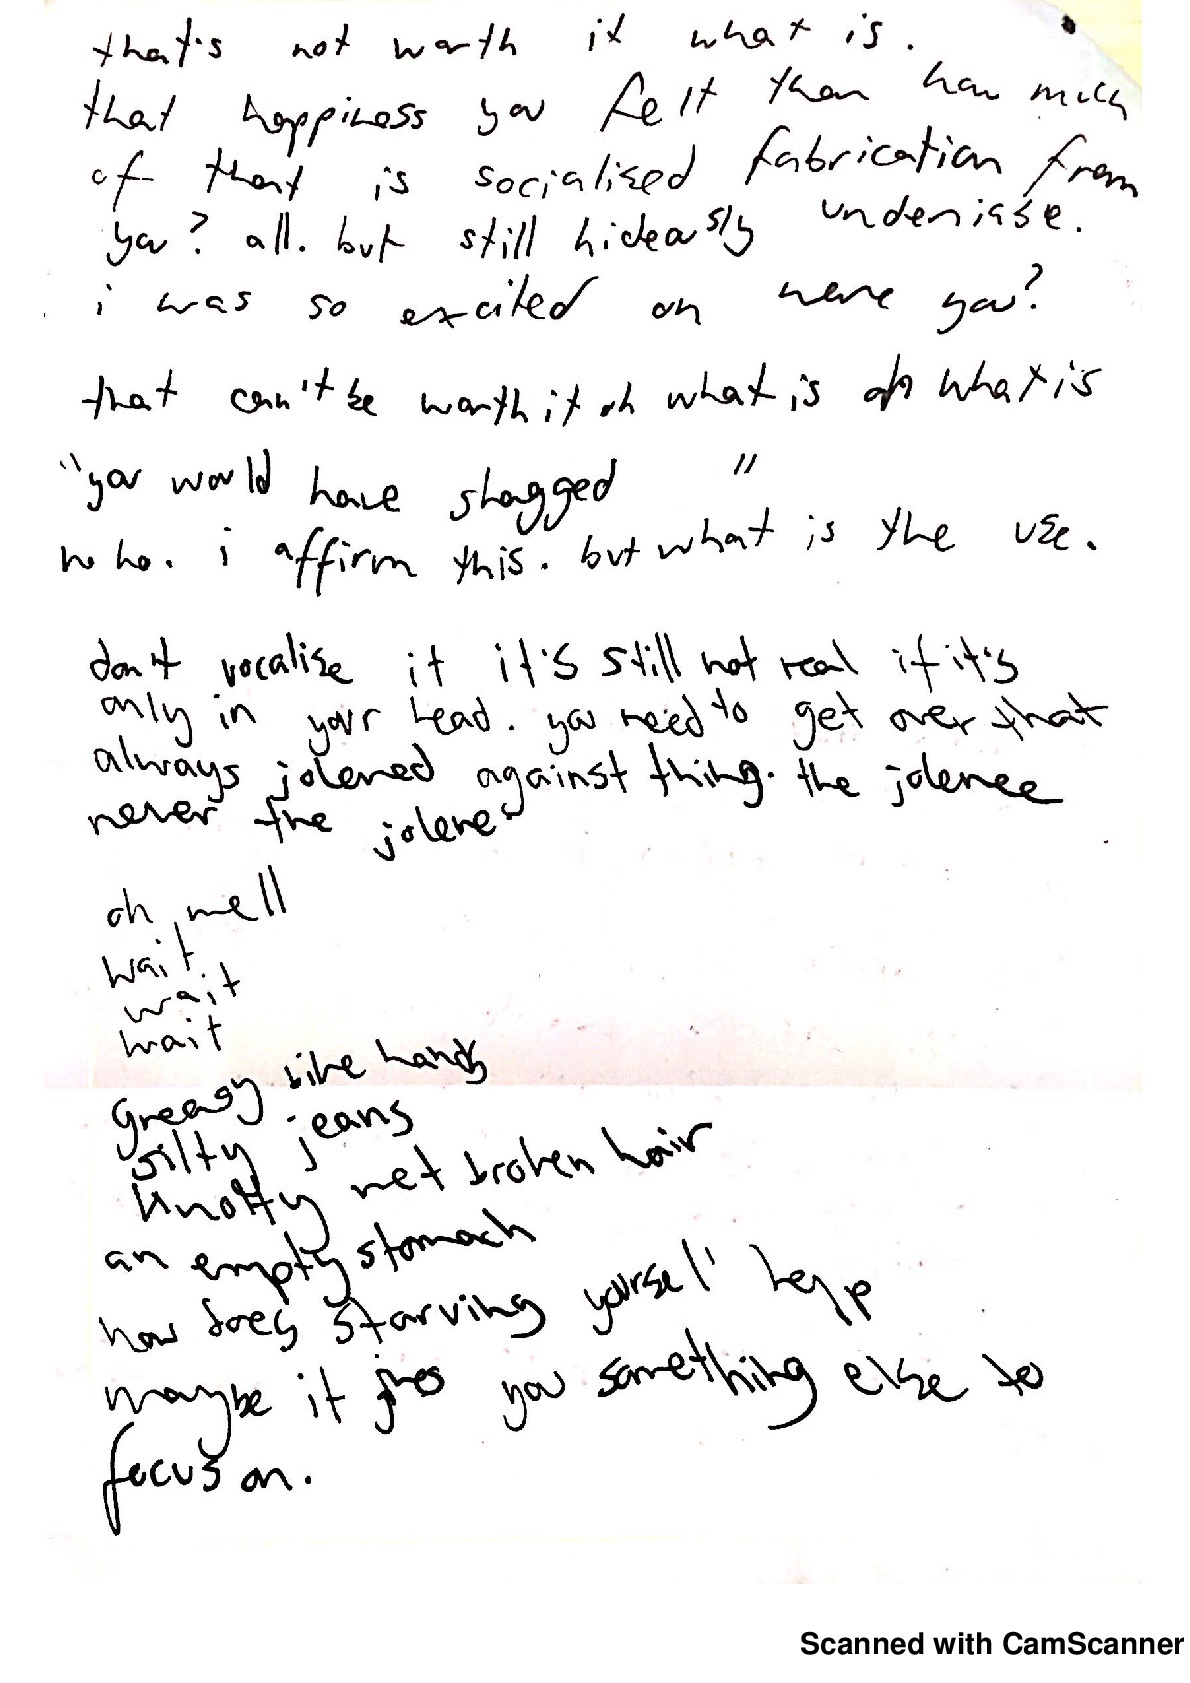 that's not worth it what is.
that happiness you felt than how much
of that is socialised fabrication from
you? all. but still hideously undeniase.
i was so excited on were you?
that can't be worth it oh what is oh what is
"you would have shagged "
ho ho. i affirm this. but what is the use.
don't vocalise it it's still not real if it's
only in your head. you need to get over that
always jolened against thing. the jolenee
never the jolene
oh well
wait
wait
wait
greasy bike hands
silty jeans
knotty wet broken hair
an empty stomach
how does starving yourself help
maybe it you something else to
focus on.
Scanned with CamScanner